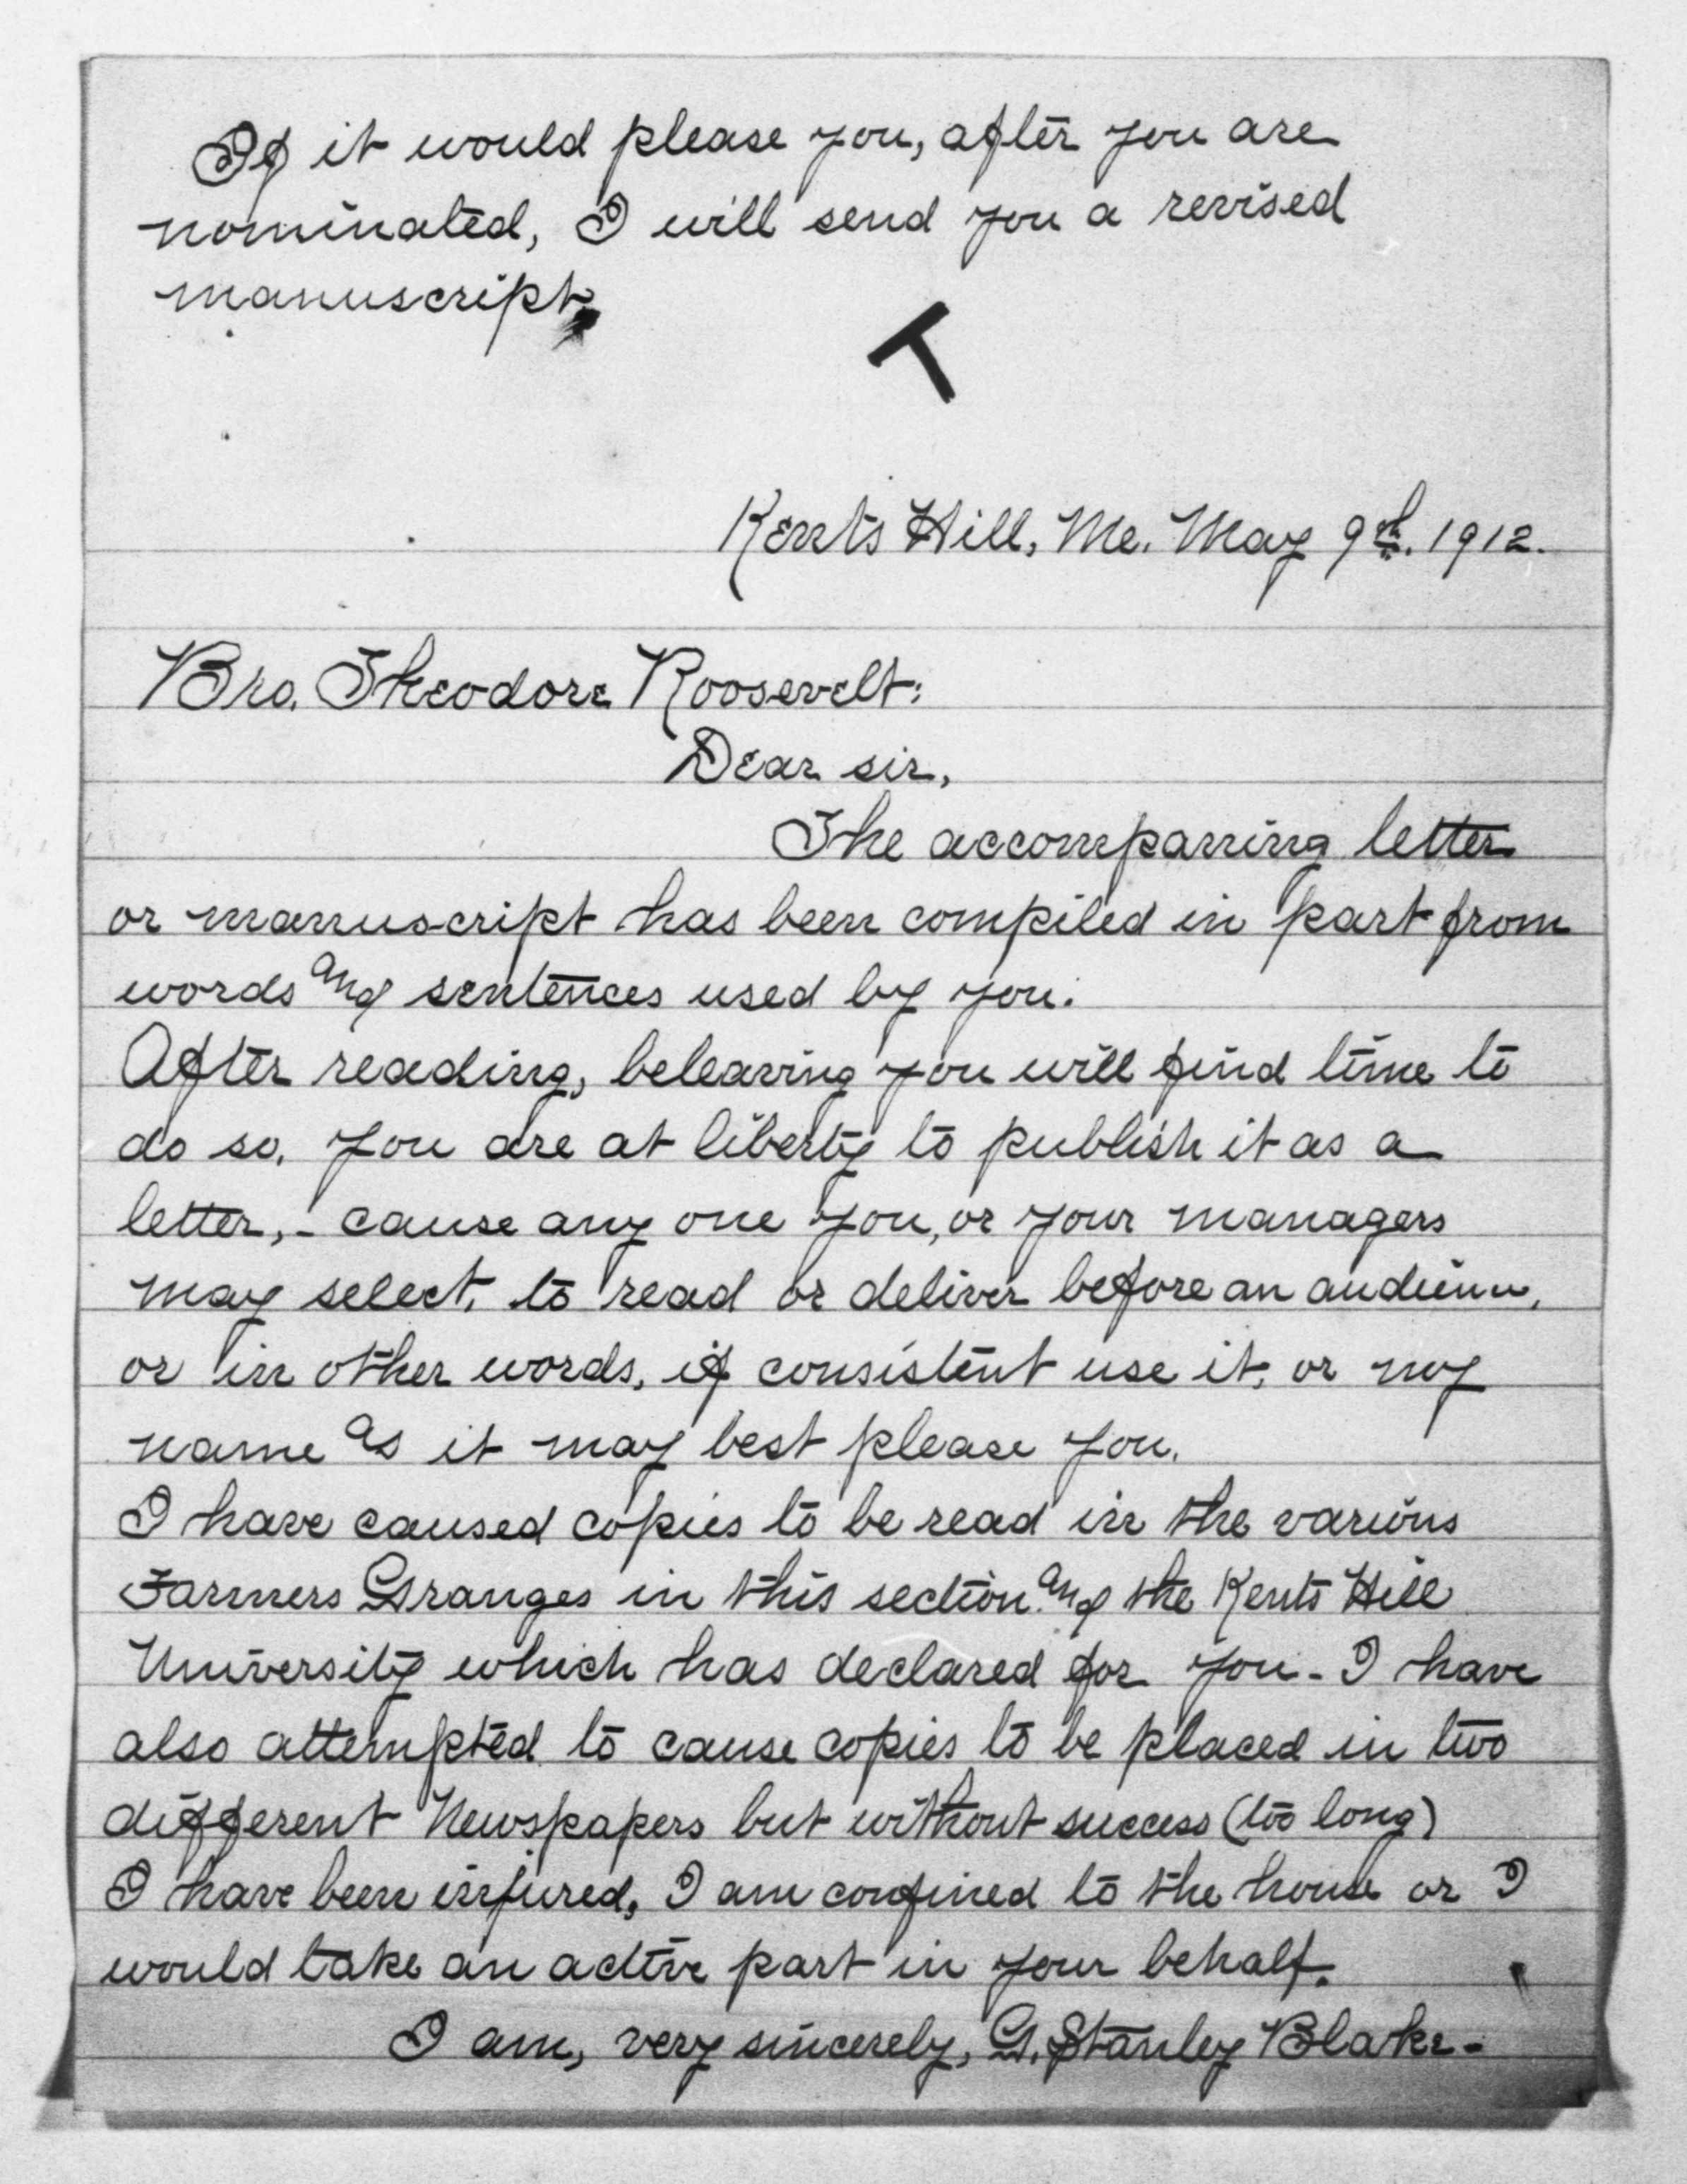 If it would please you, after you are
nominated, I will send you a revised
manuscript.
T
Kents Hill, Me. May 9th. 1912.
Bro. Theodore Roosevelt:
Dear sir,
The accompaning letter
or manuscript has been compiled in part from
words and sentences used by you.
After reading, beleaving you will find time to
do so, you are at liberty to publish it as a
letter, - cause any one you, or your managers
may select, to read or deliver before an audience,
or in other words, if consistent use it, or my
name as it may best please you.
I have caused copies to be read in the various
Farmers Granges in this section and the Kents Hill
University which has declared for you - I have
also attempted to cause copies to be placed in two
different Newspapers but without success (too long)
I have been injured, I am confined to the house or I
would take an active part in your behalf.
I am, very sincerely, G. Stanley Blake -